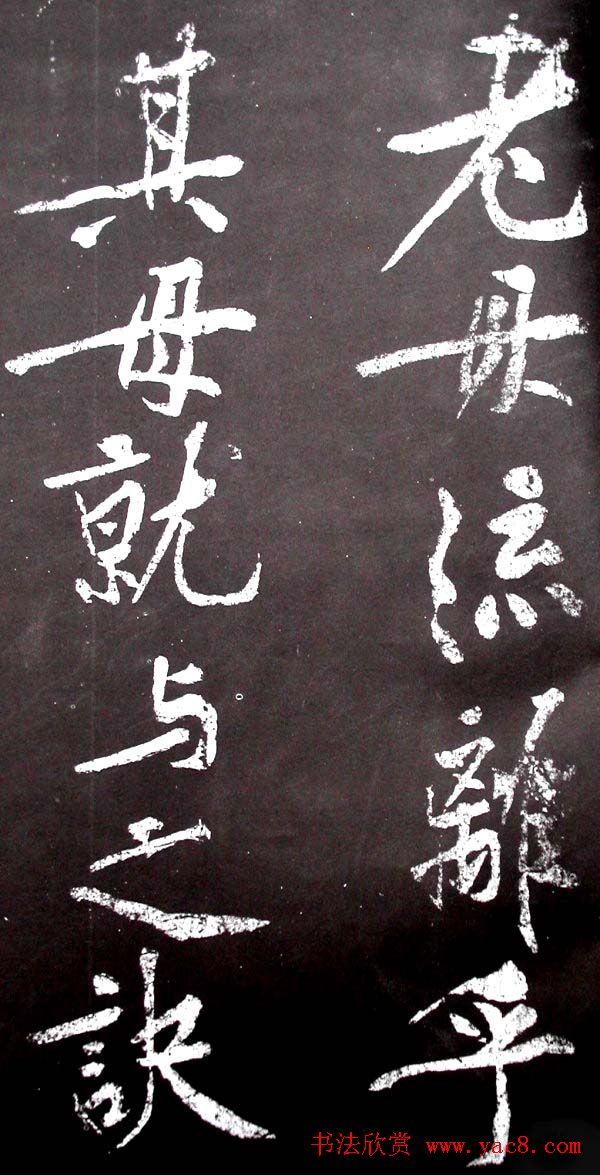 老母流離乎
其母就与之訣
书法欣赏 www.yac8.com